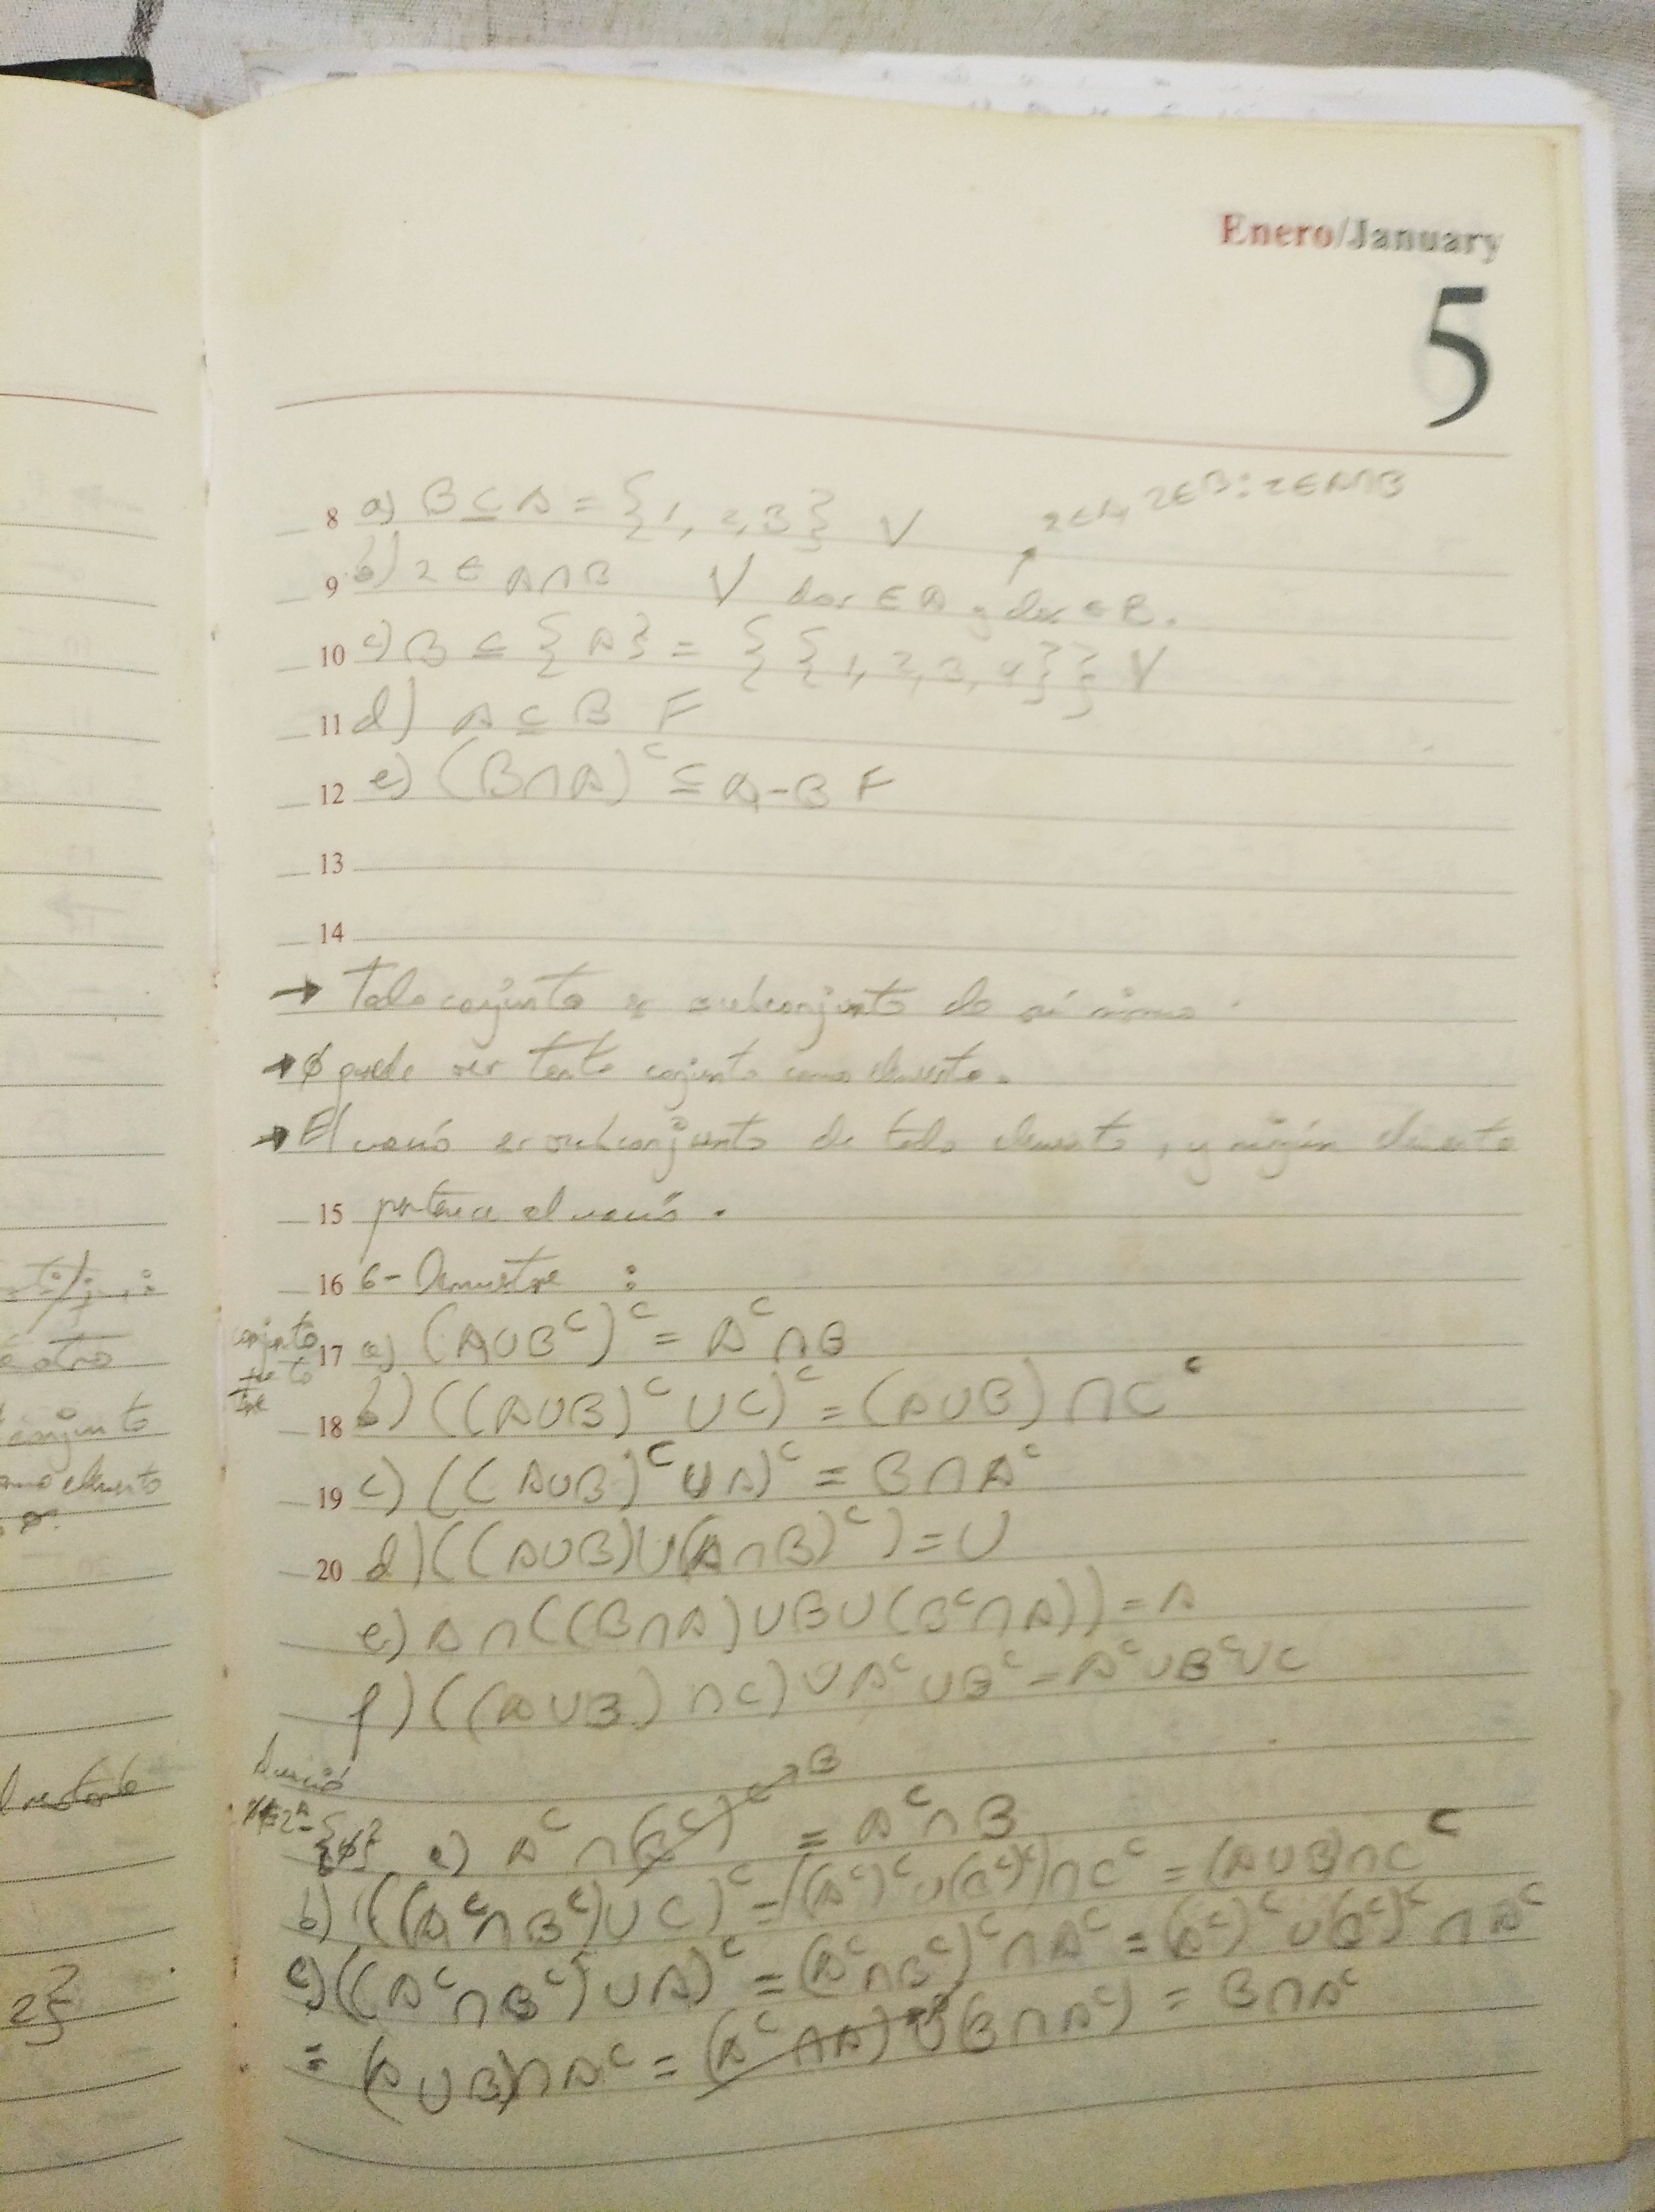 Enero/January
5
2∈A, 2∈B: 2∈A∩B
8 a) B ⊆ A = {1, 2, 3} V
9 b) 2 ∈ A∩B V dos ∈ A y dos ∈ B.
10 c) B ⊆ {A} = {{1, 2, 3, 4}} V
11 d) A ⊆ B F
12 e) (B∩A)ᶜ ⊆ A-B F
13
14
→ Todo conjunto es subconjunto de sí mismo.
→ ∅ puede ser tanto conjunto como elemento.
→ El vacío es subconjunto de todo elemento, y ningún elemento
15 pertenece al vacío.
16 6- Demuestre :
17 a) (A∪Bᶜ)ᶜ = Aᶜ∩B
18 b) ((A∪B)ᶜ∪C)ᶜ = (A∪B)∩Cᶜ
19 c) ((A∪B)ᶜ∪A)ᶜ = B∩Aᶜ
20 d) ((A∪B)∪(A∩B)ᶜ) = U
e) A∩((B∩A)∪B∪(Bᶜ∩A)) = A
f) ((A∪B)∩C)∪Aᶜ∪Bᶜ = Aᶜ∪Bᶜ∪C
B
a) Aᶜ∩(Bᶜ)ᶜ = Aᶜ∩B
b) ((Aᶜ∩Bᶜ)∪C)ᶜ = ((Aᶜ)ᶜ∪(Bᶜ)ᶜ)∩Cᶜ = (A∪B)∩Cᶜ
c) ((Aᶜ∩Bᶜ)∪A)ᶜ = (Aᶜ∩Bᶜ)ᶜ∩Aᶜ = (Aᶜ)ᶜ∪(Bᶜ)ᶜ∩Aᶜ
= (A∪B)∩Aᶜ = (Aᶜ∩A)∪(B∩Aᶜ) = B∩Aᶜ
é otro
conjunto
elemento
2}